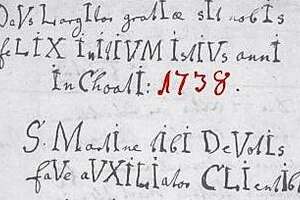 DeVs LargItor gratIæ sIt nobIs
feLIX InItIVM IstIVs annI
InChoatI: 1738.
S. MartIne tIbI DeVotIs
faVe aVXILIator CLIentIb